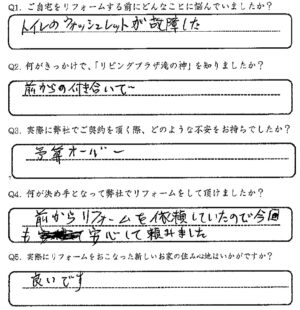 Q1. ご自宅をリフォームする前にどんなことに悩んでいましたか？
トイレのウォシュレットが故障した
Q2. 何がきっかけで、「リビングプラザ滝の神」を知りましたか？
前からの付き合いで〜
Q3. 実際に弊社でご契約を頂く際、どのような不安をお持ちでしたか？
予算オーバー
Q4. 何が決め手となって弊社でリフォームをして頂けましたか？
前からリフォームを依頼していたので今回
も安心して頼みました
Q5. 実際にリフォームをおこなった新しいお家の住み心地はいかがですか？
良いです